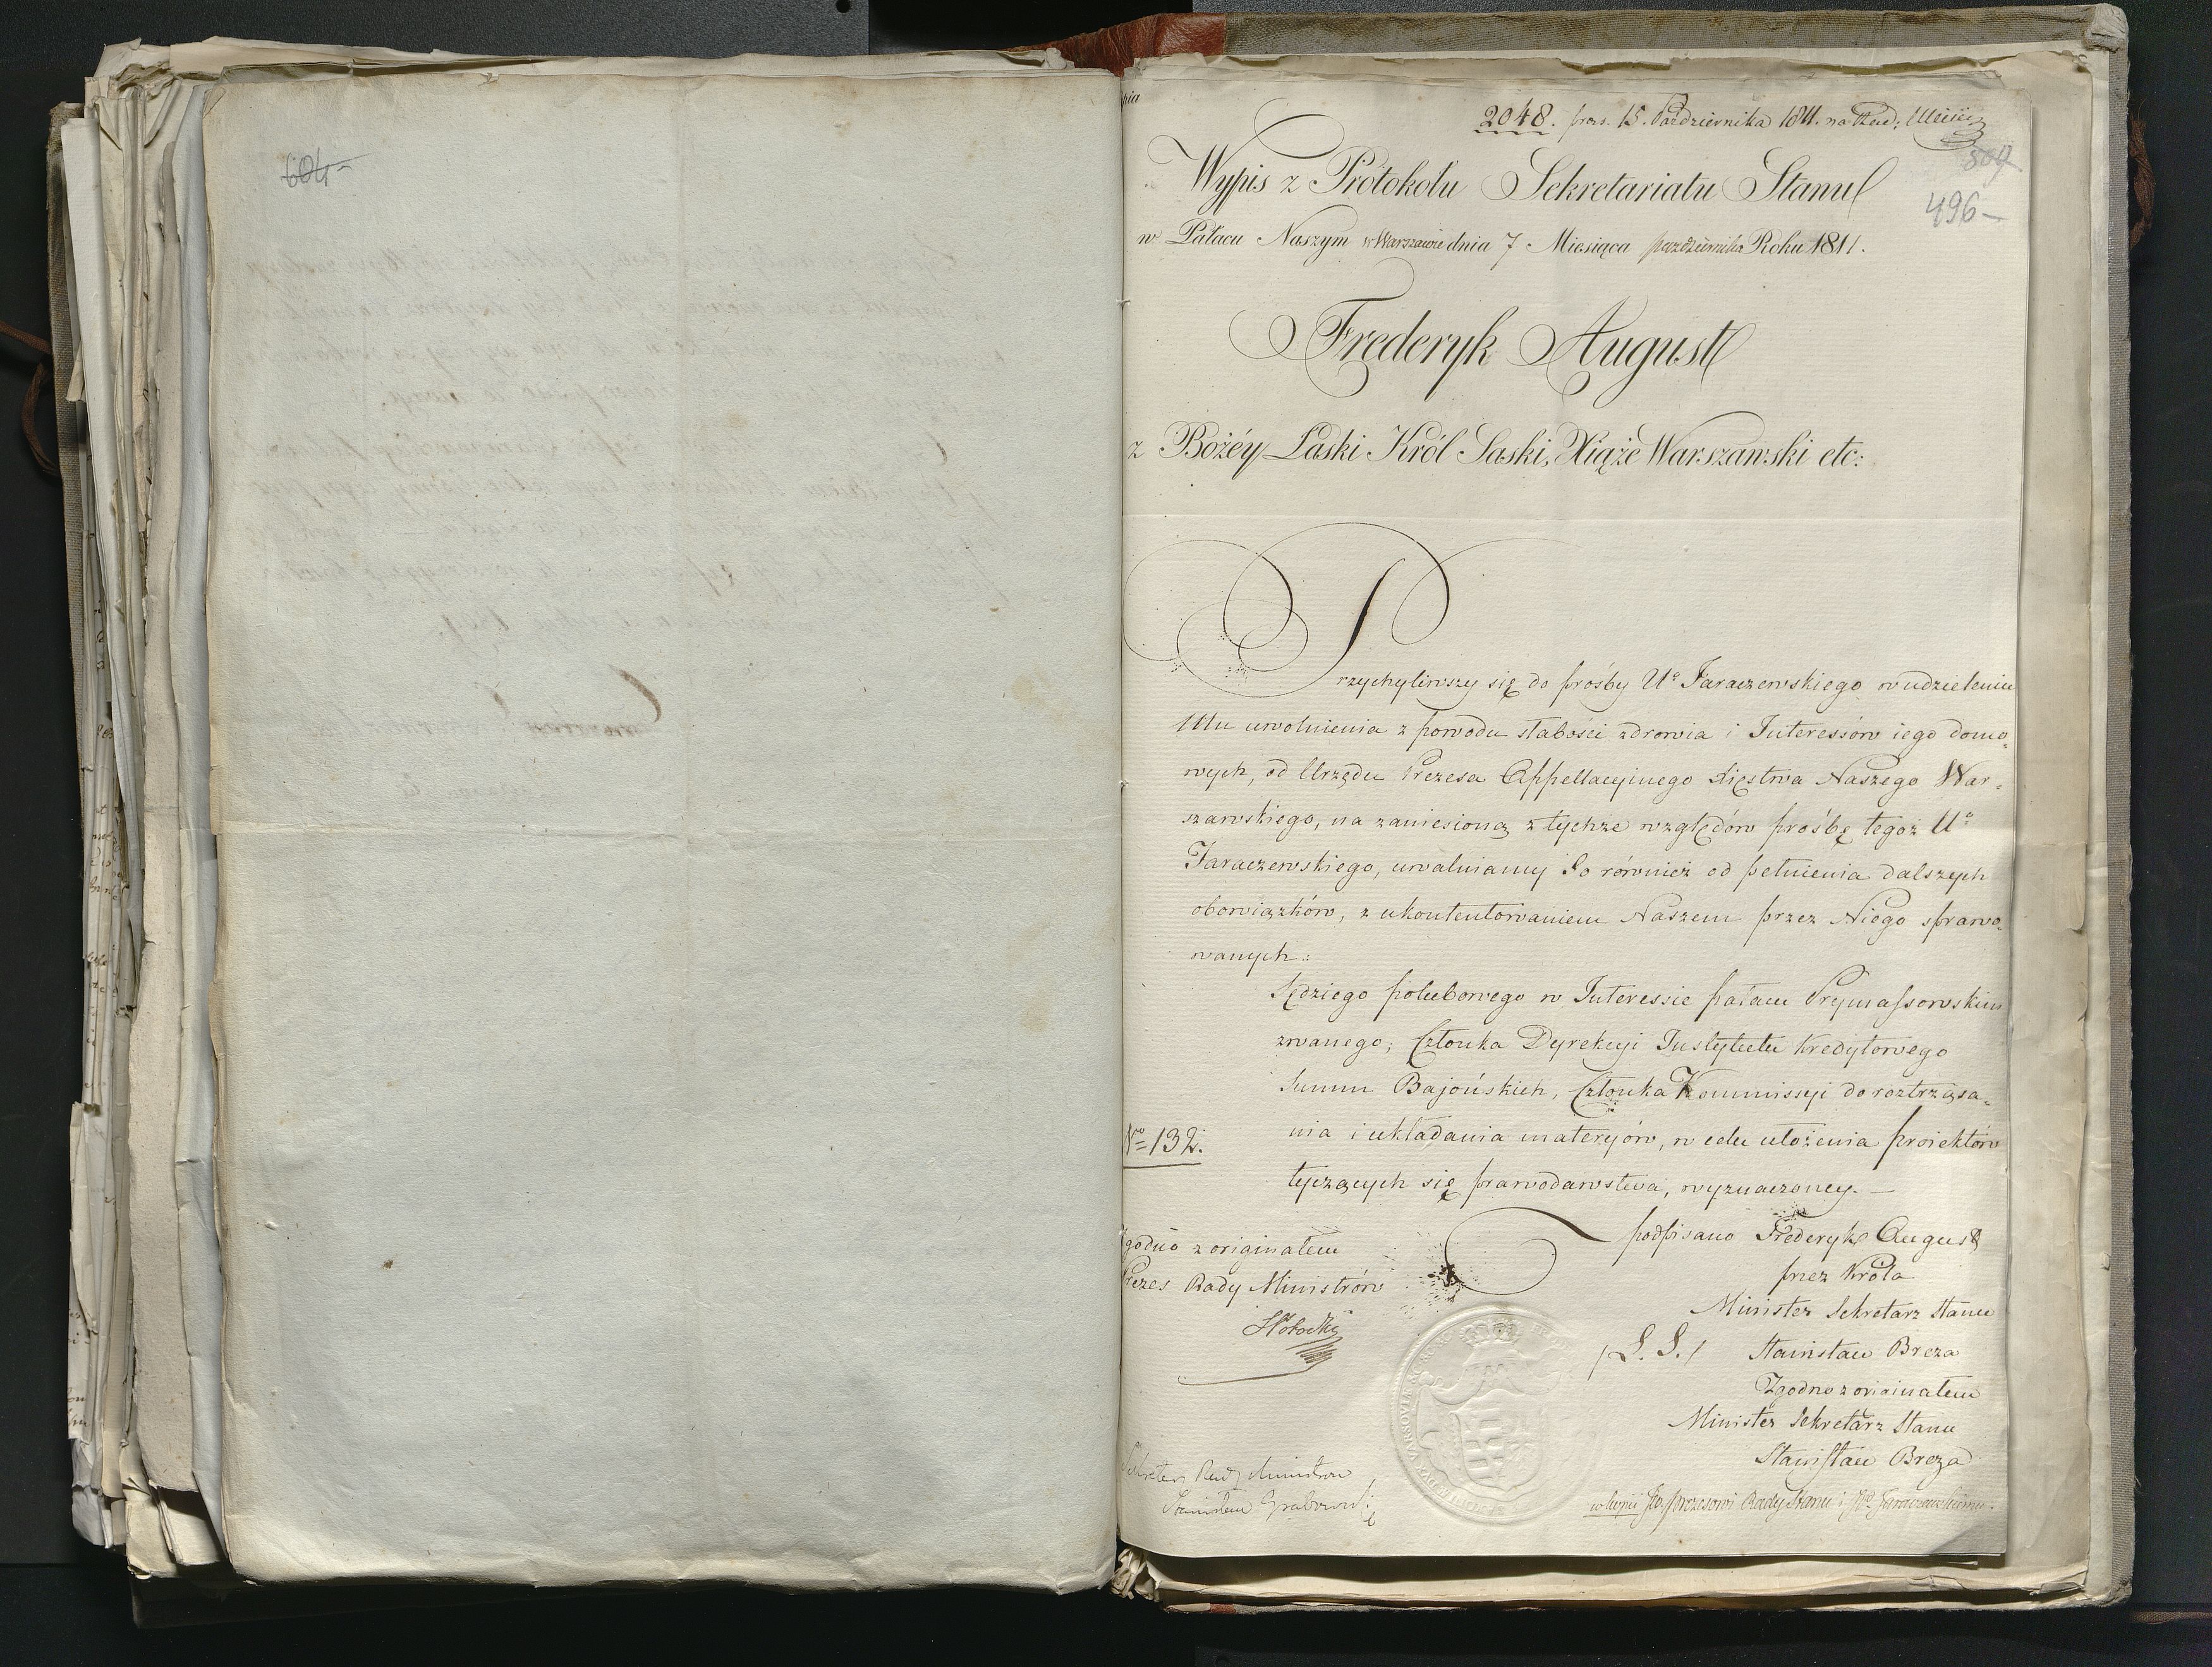 604
2048. prez. 15. Października 1811. na Rad: Minis
507
496
Wypis z Protokołu Sekretariatu Stanu
w Pałacu Naszym w Warszawie dnia 7 Miesiąca października Roku 1811.
Frederyk August
z Bożéy Łaski Król Saski, Xiąże Warszawski etc:
Przychyliwszy się do prośby Uo Jaraczewskiego w udzieleniu
Mu uwolnienia z powodu słabości zdrowia i Interessów iego domo=
wych, od Urzędu Prezesa Appellacyinego Xięstwa Naszego War=
szawskiego, na zaniesioną z tychże względów prośbę tegoż Uo
Jaraczewskiego, uwalniamy Go również od pełnienia dalszych
obowiązków, z ukontentowaniem Naszem przez Niego sprawo=
wanych:
Sędziego polubowego w Interessie pałacu Prymassowskim
zwanego; Członka Dyrekcyi Instytutu Kredytowego
Summ Bajońskich, Członka Kommissyi do roztrząsa=
nia i układania materyów, w celu ułożenia proiektów
tyczących się prawodawstwa, wyznaczoney. —
No 132.
podpisano Frederyk August
przez Króla
Minister Sekretarz Stanu
/L. S./ Stanisław Breza
Zgodno z originałem
Minister Sekretarz Stanu
Stanisław Breza
zgodno z originałem
Prezes Rady Ministrów
SPotocki
Sekretarz Rady Ministrow
Stanisław Grabowski
w kopii Jo. prezesowi Rady Stanu i Jo. Jaraczewskiemu.